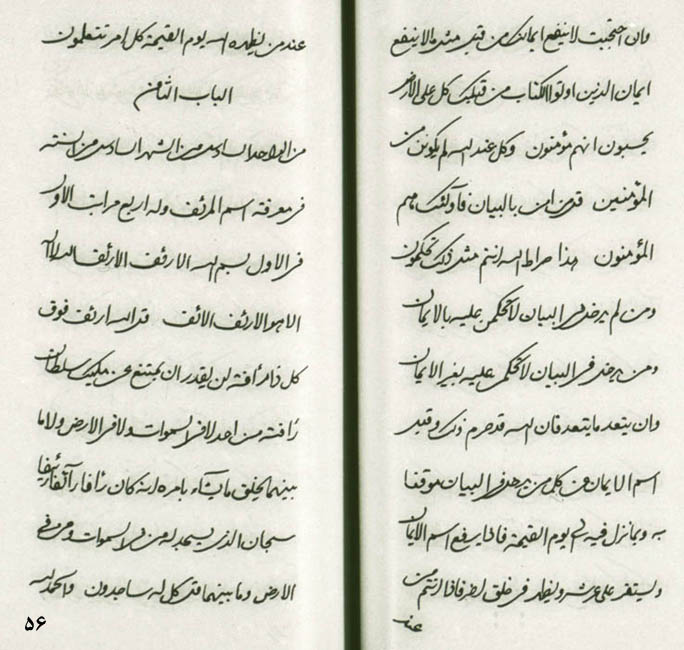 وان احتجبت لا ينفع ايمانك من قبل مثل ما لا ينفع
ايمان الذين اوتوا الكتاب من قبلك كل على الارض
يحسبون انهم مؤمنون وكل عند الله لم يكونن من
المؤمنين قل من امن بالبيان فاولئك هم
المؤمنون هذا صراط الله انتم مثل ذلك تحكمون
ومن لم يدخل في البيان لا تحكمن عليه بالايمان
ومن يدخل في البيان لا تحكمن عليه بغير الايمان
وان يتعد ما يتعد فان الله قد حرم ذلك وقد
اسم الايمان عن كل من يدخل في البيان موقنا
به وبما نزل فيه الى يوم القيمة فاذا يرفع اسم الايمان
وليستقر على عرشه ويظهر في خلق فاذا انتم من
عند
عند من يظهره الله يوم القيمة كل امر تتعلمون
الباب الثامن
من الواحد السادس من الشهر السادس من السنة
في معرفة اسم المرئف وله اربع مراتب الاول
في الاول بسم الله الارئف الارئف الله لا اله
الا هو الارئف الارئف قل الله ارئف فوق
كل ذا مرأفة لن يقدر ان يمتنع عن مليك سلطان
رأفته من احد لا في السموات ولا في الارض ولا ما
بينهما يخلق ما يشاء بامره انه كان رآفا رآئفا رئيفا
سبحان الذي يسجد له من في السموات ومن في
الارض وما بينهما قل كل له ساجدون والحمد لله
۵۶